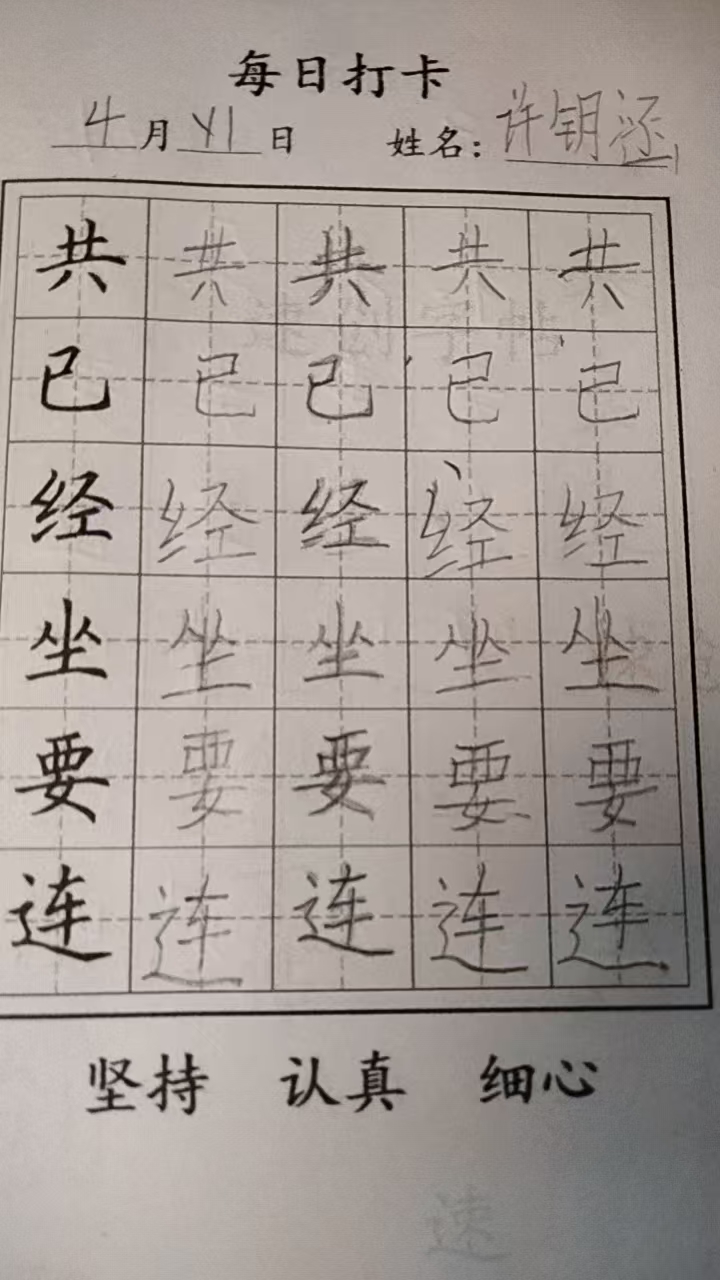 每日打卡
4月21日 姓名：许钥
共 共 共 共 共
已 已 已 已 已
经 经 经 经 经
坐 坐 坐 坐 坐
要 要 要 要 要
连 连 连 连 连
坚持 认真 细心
速